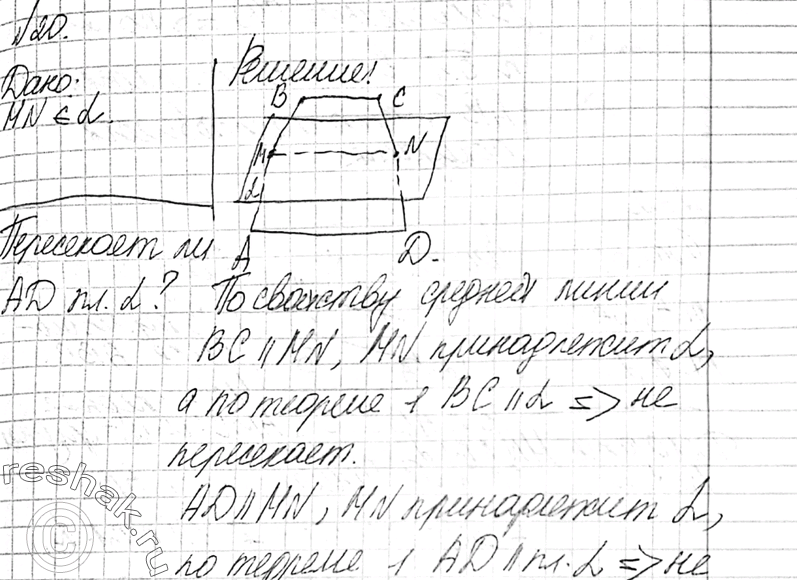 №20.
Дано:
MN ∈ α.
Решение:
B C
M N
α
A D.
Пересекает ли
AD пл. α?
По свойству средней линии
BC || MN, MN принадлежит α,
а по теореме 1 BC || α => не
пересекает.
AD || MN, MN принадлежит α,
по теореме 1 AD || пл. α => не
reshak.ru